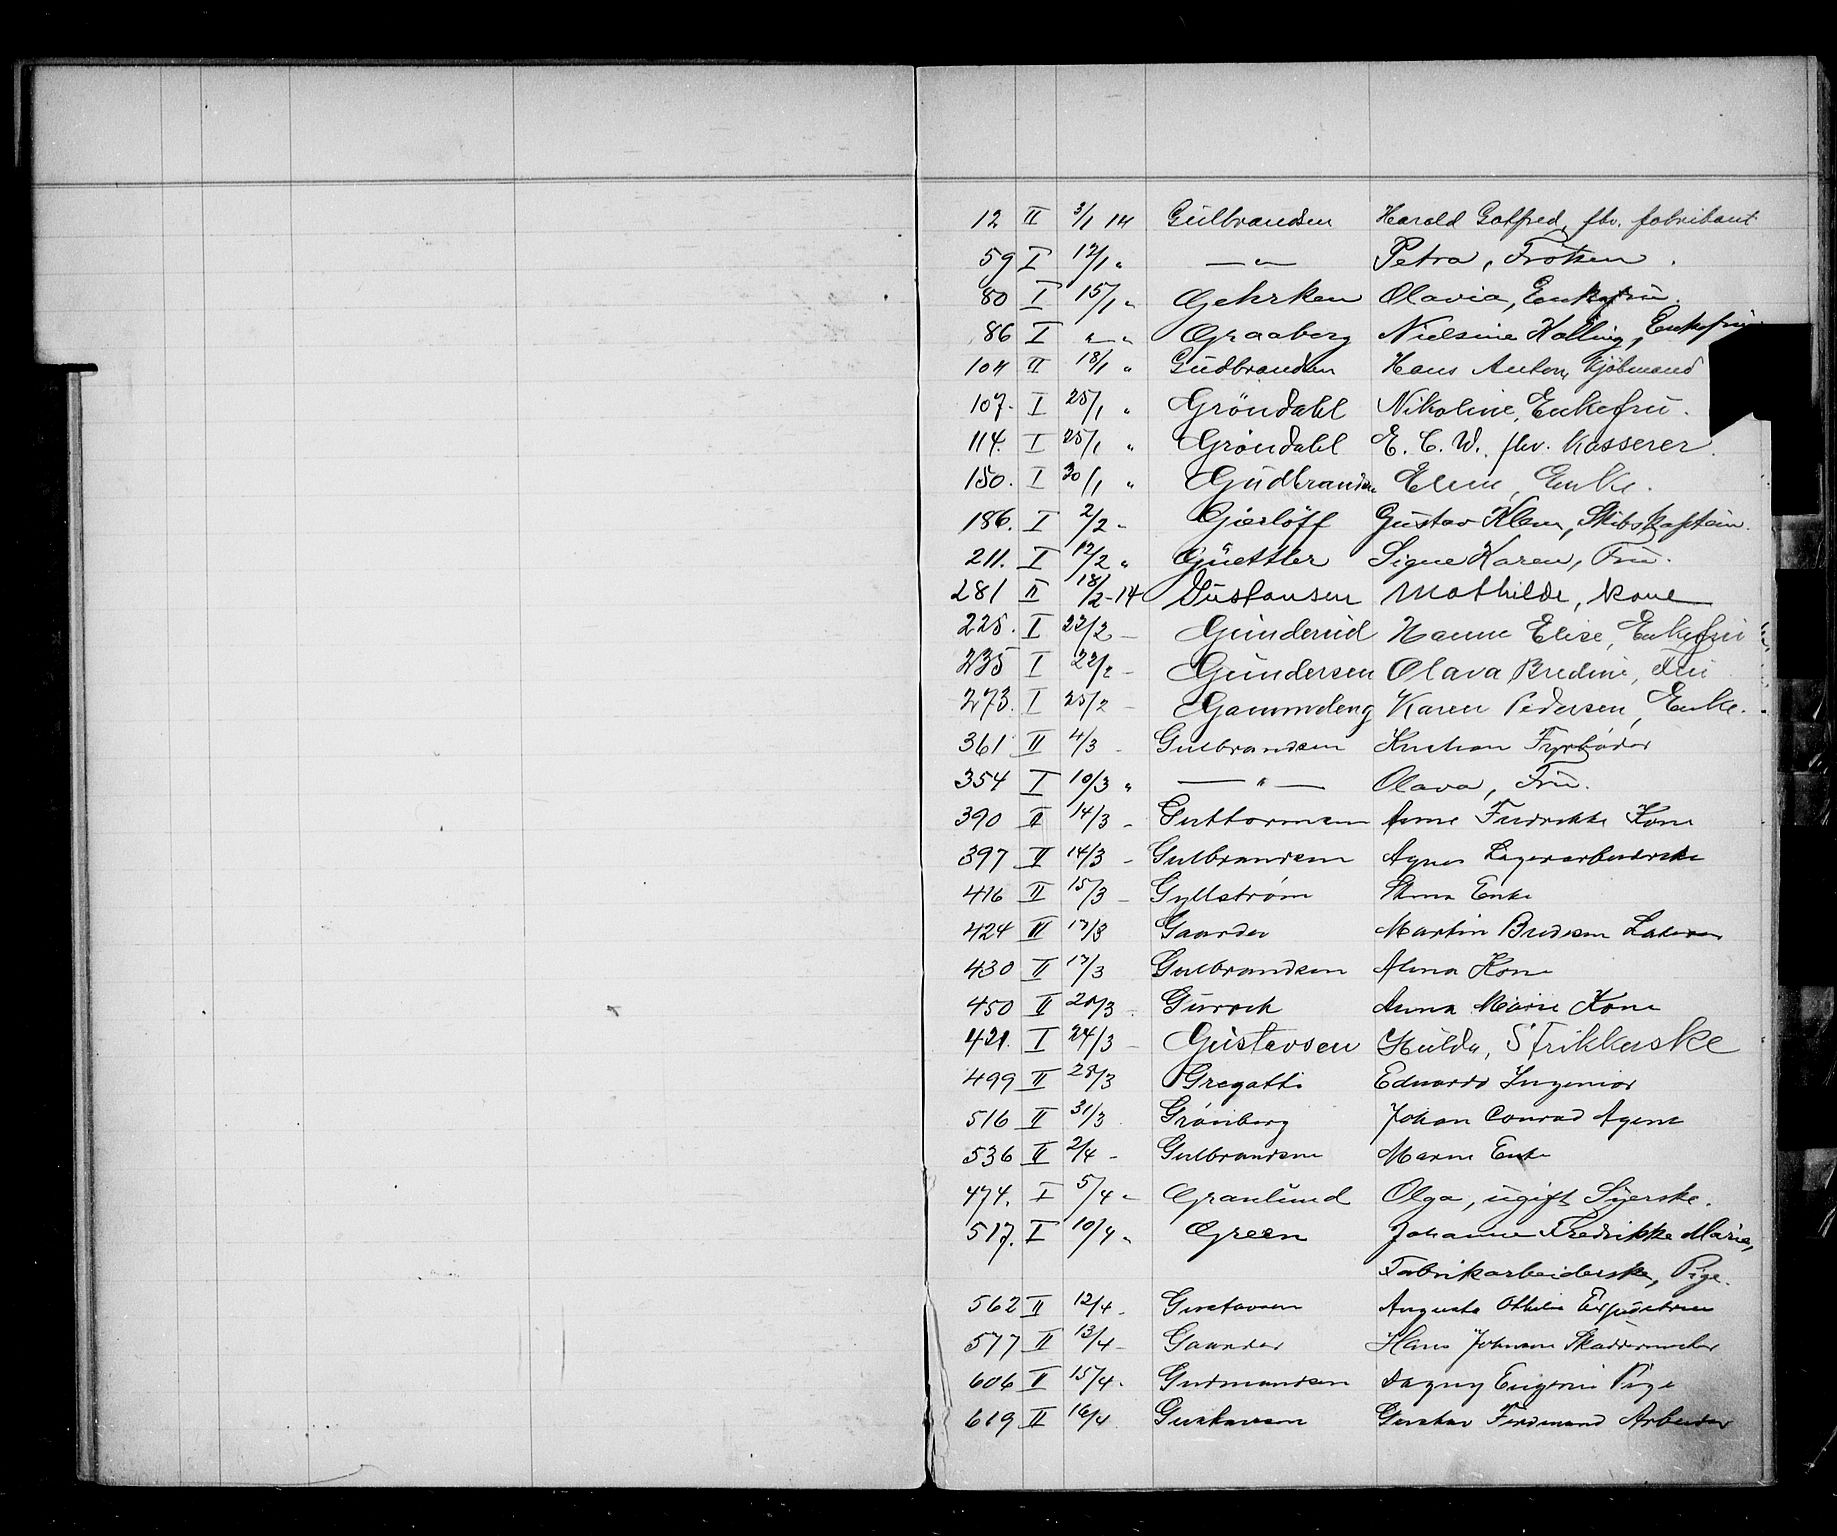 12 II 3/1 14 Gulbrandsen Harald Gotfred, fhv. fabrikant
59 I 12/1 " —"— Petra, Frøken.
80 I 15/1 " Gehrken Olavia, Enkefru.
86 I "—" Graaberg Nielsine Kolling, Enkefru
104 II 18/1 " Gudbrandsen Hans Anton, Kjøbmand
107. I 25/1 " Gröndahl Nikoline, Enkefru.
114. I 25/1 " Gröndahl E. C. W. fhv. Kasserer.
150. I 30/1 " Gudbrandsen Eline, Enke.
186. I 2/2 - Gjerlöff Gustav Klem, Skibskaptein.
211. I 12/2 " Güettler Signe Karen, Fru.
281 II 18/2-14 Gustavsen Mathilde, kone
225. I 22/2 - Gunderud Hanne Elise, Enkefru
235 I 22/2 - Gundersen Olava Bredine, Fru
273. I 25/2 - Gammeleng Karen Pedersen, Enke.
361 II 4/3 - Gulbrandsen Kristian Fyrbøder
354 I 10/3 " —"— Olava, Fru.
390 II 14/3 - Guttormsen Anne Fredrikke Kone
397 II 14/3 - Gulbrandsen Agnes Lagerarbeiderske
416 II 15/3 - Gyllstrøm Enke
424 II 17/3 Gaarder Martin Bredesen
430 II 17/3 Gulbrandsen Alma Kone
450 II 20/3 - Anna Marie Kone
421. I 24/3 - Gustavsen Hulda, Strikkerske
499 II 28/3 Gregatti Eduardo Ingeniør
516 II 31/3 Grønberg Johan Conrad Agent
536 II 2/4 - Gulbrandsen Maren Enke
474. I 5/4 - Granlund Olga, ugift Syerske.
517. I 10/4 " Green Johanne Fredrikke Marie,
Fabrikarbeiderske, Pige.
562 II 12/4 - Gustavsen Augusta Othilie Expeditrice
577 II 13/4 - Gaarder Hans Johnsen Skaddermaker
606 II 15/4 - Gudmundsen Dagny Eugenie Pige
619 II 16/4 Gustavsen Gustav Ferdinand Arbeider